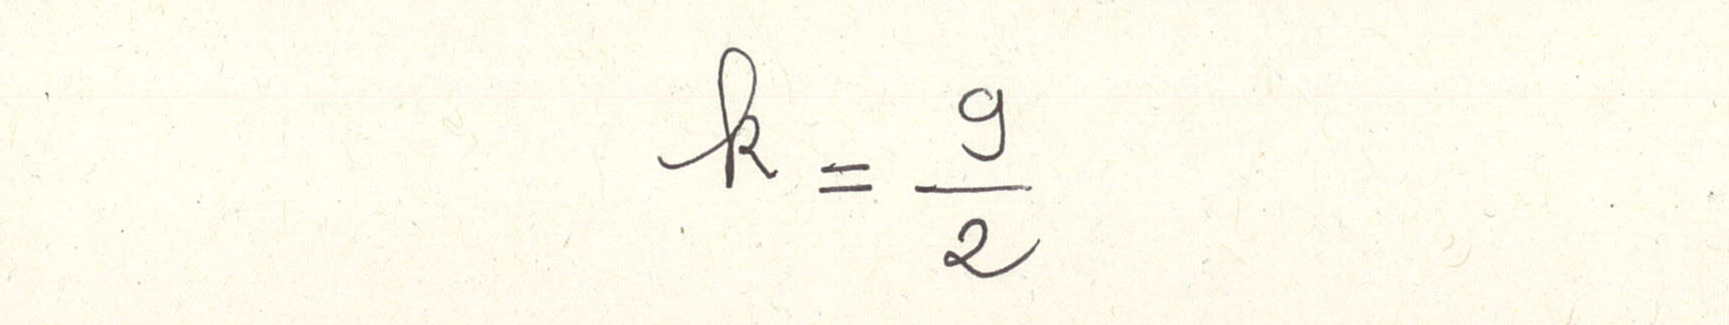 k = 9/2